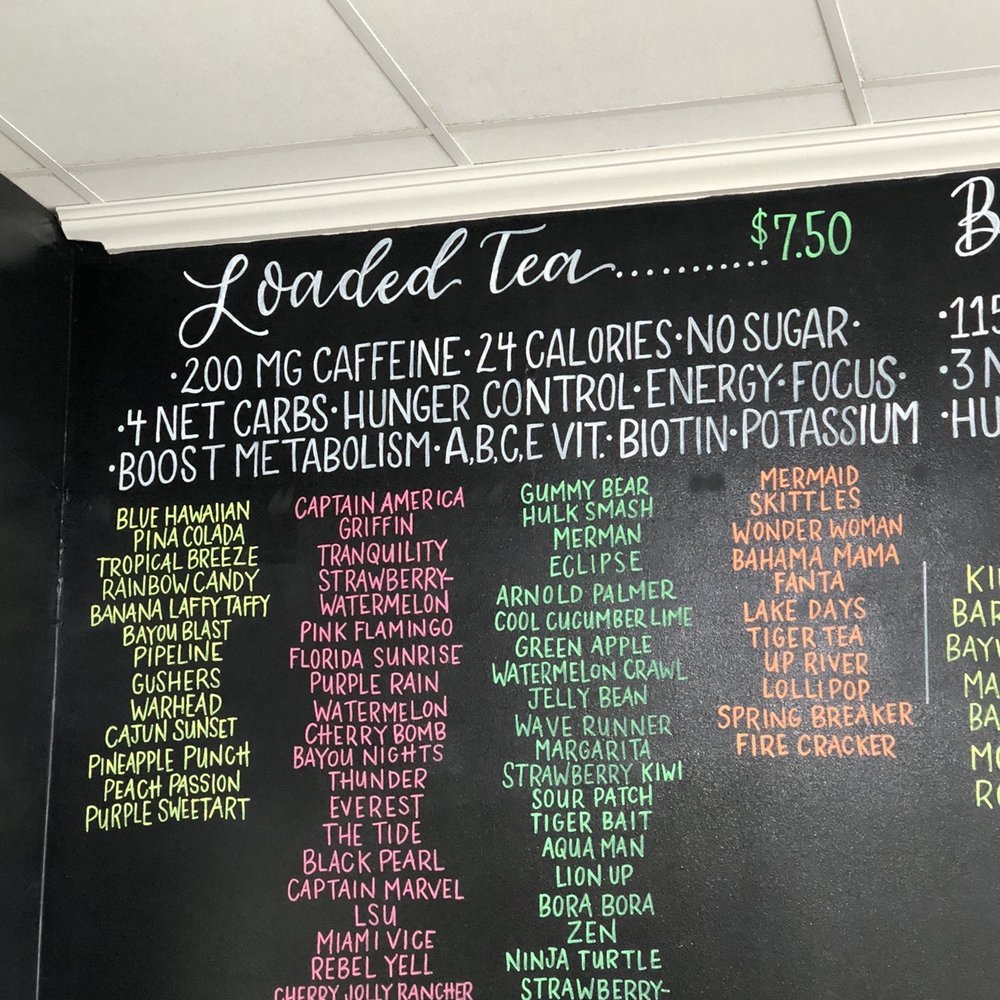 Loaded Tea............$7.50
·200 MG CAFFEINE·24 CALORIES·NO SUGAR·
·4 NET CARBS·HUNGER CONTROL·ENERGY·FOCUS·
·BOOST METABOLISM·A,B,C,E VIT.·BIOTIN·POTASSIUM
BLUE HAWAIIAN
PINA COLADA
TROPICAL BREEZE
RAINBOW CANDY
BANANA LAFFY TAFFY
BAYOU BLAST
PIPELINE
GUSHERS
WARHEAD
CAJUN SUNSET
PINEAPPLE PUNCH
PEACH PASSION
PURPLE SWEETART
CAPTAIN AMERICA
GRIFFIN
TRANQUILITY
STRAWBERRY-
WATERMELON
PINK FLAMINGO
FLORIDA SUNRISE
PURPLE RAIN
WATERMELON
CHERRY BOMB
BAYOU NIGHTS
THUNDER
EVEREST
THE TIDE
BLACK PEARL
CAPTAIN MARVEL
LSU
MIAMI VICE
REBEL YELL
CHERRY JOLLY RANCHER
GUMMY BEAR
HULK SMASH
MERMAN
ECLIPSE
ARNOLD PALMER
COOL CUCUMBER LIME
GREEN APPLE
WATERMELON CRAWL
JELLY BEAN
WAVE RUNNER
MARGARITA
STRAWBERRY KIWI
SOUR PATCH
TIGER BAIT
AQUA MAN
LION UP
BORA BORA
ZEN
NINJA TURTLE
STRAWBERRY-
MERMAID
SKITTLES
WONDER WOMAN
BAHAMA MAMA
FANTA
LAKE DAYS
TIGER TEA
UP RIVER
LOLLIPOP
SPRING BREAKER
FIRE CRACKER
B
·115
·3 N
·HU
KI
BAR
BAY
MA
BA
MO
RO